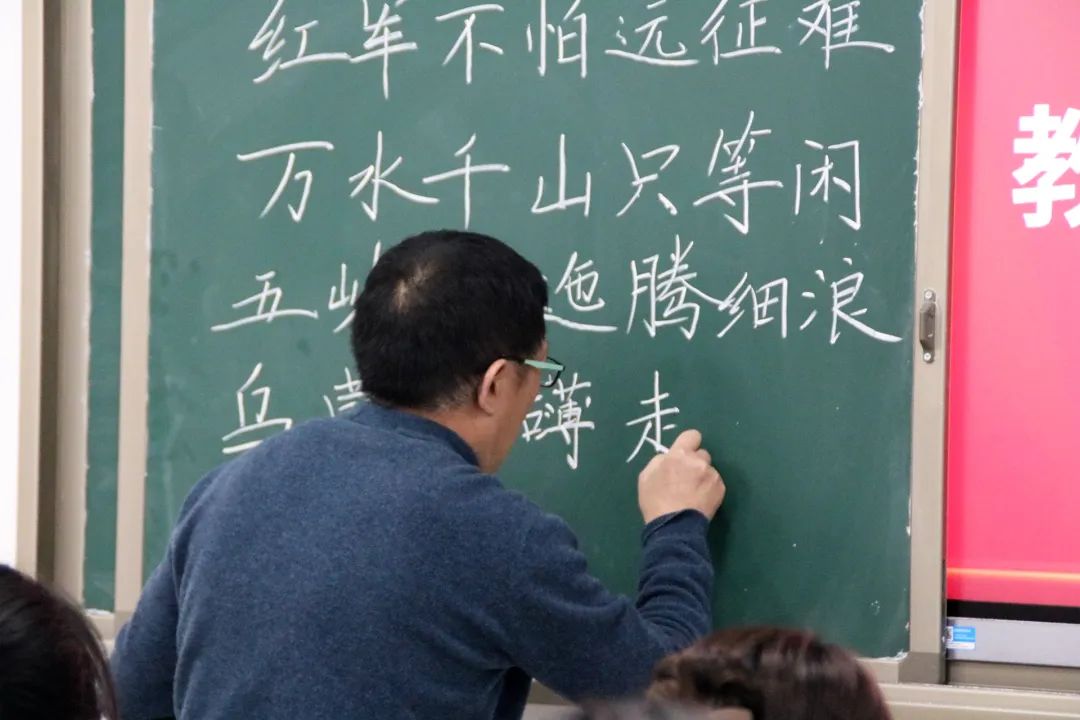 红军不怕远征难
万水千山只等闲
五岭迤腾细浪
乌蒙礴走
教